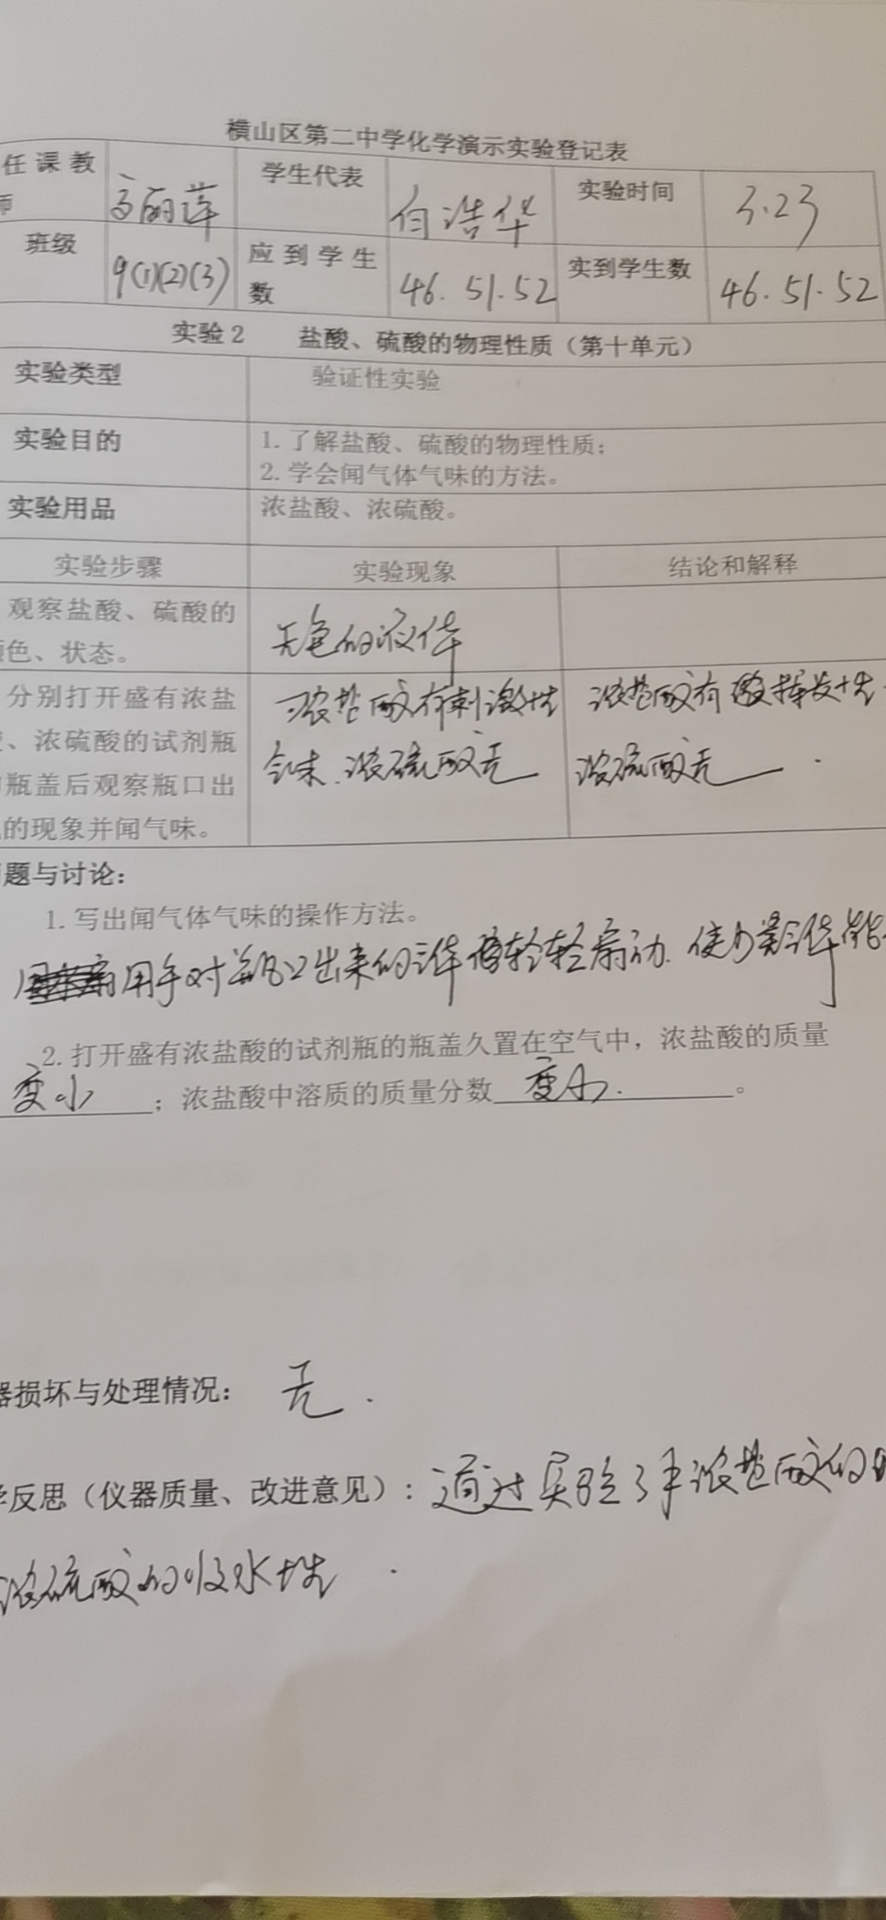 横山区第二中学化学演示实验登记表
任课教师 高丽萍 学生代表 白浩华 实验时间 3.23
班级 9(1)(2)(3) 应到学生数 46. 51. 52 实到学生数 46. 51. 52
实验2 盐酸、硫酸的物理性质（第十单元）
实验类型 验证性实验
实验目的 1.了解盐酸、硫酸的物理性质；
2.学会闻气体气味的方法。
实验用品 浓盐酸、浓硫酸。
实验步骤 实验现象 结论和解释
观察盐酸、硫酸的
色、状态。
无色的液体
分别打开盛有浓盐
、浓硫酸的试剂瓶
瓶盖后观察瓶口出
的现象并闻气味。
浓盐酸有刺激性
气味.浓硫酸无
浓盐酸有挥发性
浓硫酸无.
题与讨论：
1.写出闻气体气味的操作方法。
用手对着瓶口出来的气体轻轻扇动.使少量气体
2.打开盛有浓盐酸的试剂瓶的瓶盖久置在空气中，浓盐酸的质量
变小；浓盐酸中溶质的质量分数变小.。
器损坏与处理情况： 无.
学反思（仪器质量、改进意见）：通过实验了解浓盐酸的
浓硫酸的吸水性.